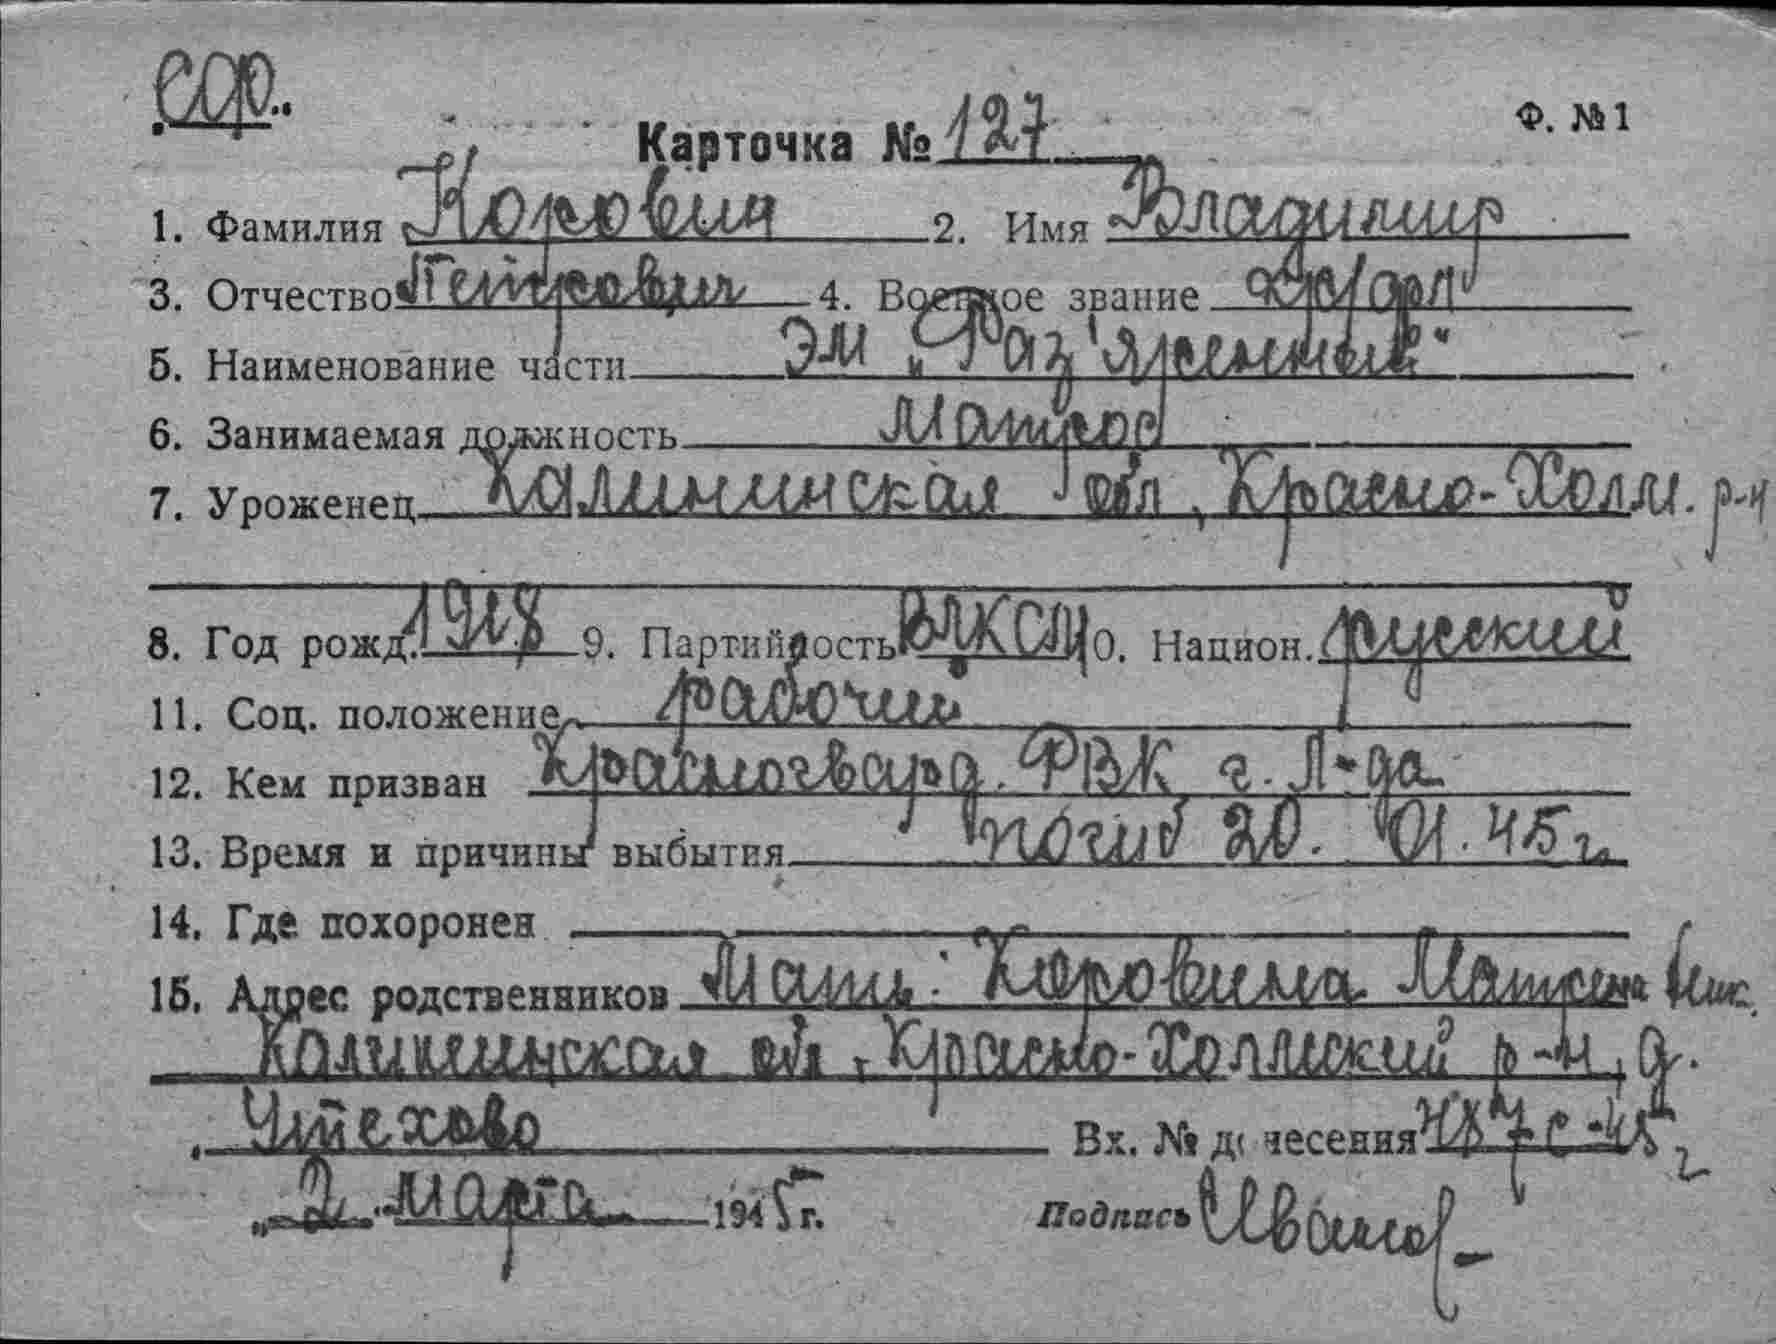 Ф. №1
Карточка № 127
1. Фамилия Коровин 2. Имя Владимир
3. Отчество Петрович 4. Военное звание кр/фл
5. Наименование части ЭМ „Раз'яренный"
6. Занимаемая должность Матрос
7. Уроженец Калининская обл, Красно-Холм. р-н
8. Год рожд. 1918 9. Партийность ВЛКСМ 10. Национ. русский
11. Соц. положение рабочий
12. Кем призван Красногвард. РВК г. Л-да
13. Время и причины выбытия погиб 20. 01. 45 г.
14. Где похоронен
15. Адрес родственников Мать: Коровина Матрена
Калининская обл, Красно-Холмский р-н, д.
Утехово Вх. № донесения 487с-45 г
„2" Марта 1945 г. Подпись Иванов